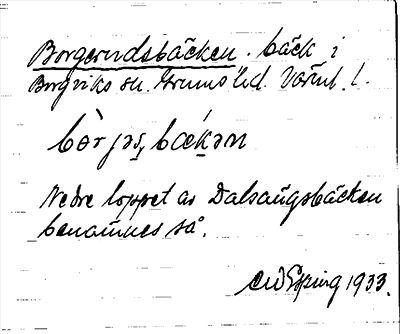 Borgerudsbäcken. bäck i
Borgviks sn. Grums hd. Värml. l.
bòrjəs, bækən
Nedre loppet av Dalsängsbäcken
benämnes så.
1933.